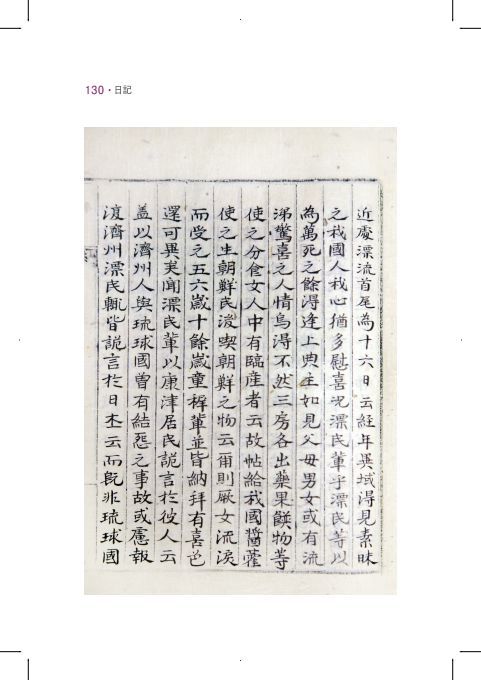 130 · 日記
近處漂流首尾為十六日云經年異域得見素昧
之我國人我心猶多慰喜况漂民輩乎漂民等以
為萬死之餘得逢上典主如見父母男女或有流
涕驚喜之人情烏得不然三房各出藥果饌物等
使之分食女人中有臨産者云故帖給我國醬藿
使之生朝鮮民後喫朝鮮之物云爾則厥女流淚
而受之五六歲十餘歲童稺輩並皆納拜有喜色
還可異矣聞漂民輩以康津居民詭言於彼人云
盖以濟州人與琉球國曾有結怨之事故或慮報
復濟州漂民輒皆詭言於日本云而旣非琉球國